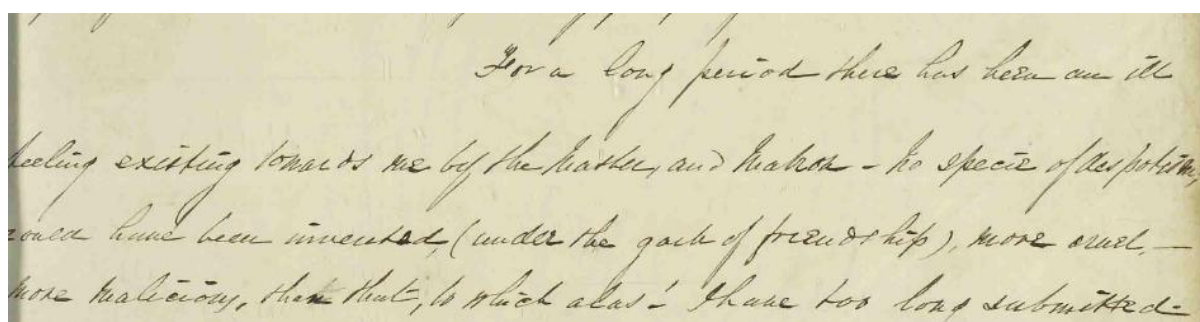 For a long period there has been an ill
feeling existing towards me by the Master, and Matron - No specie of despotism,
could have been invented, (under the garb of friendship), more cruel, —
more malicious, than that, to which alas! I have too long submitted-